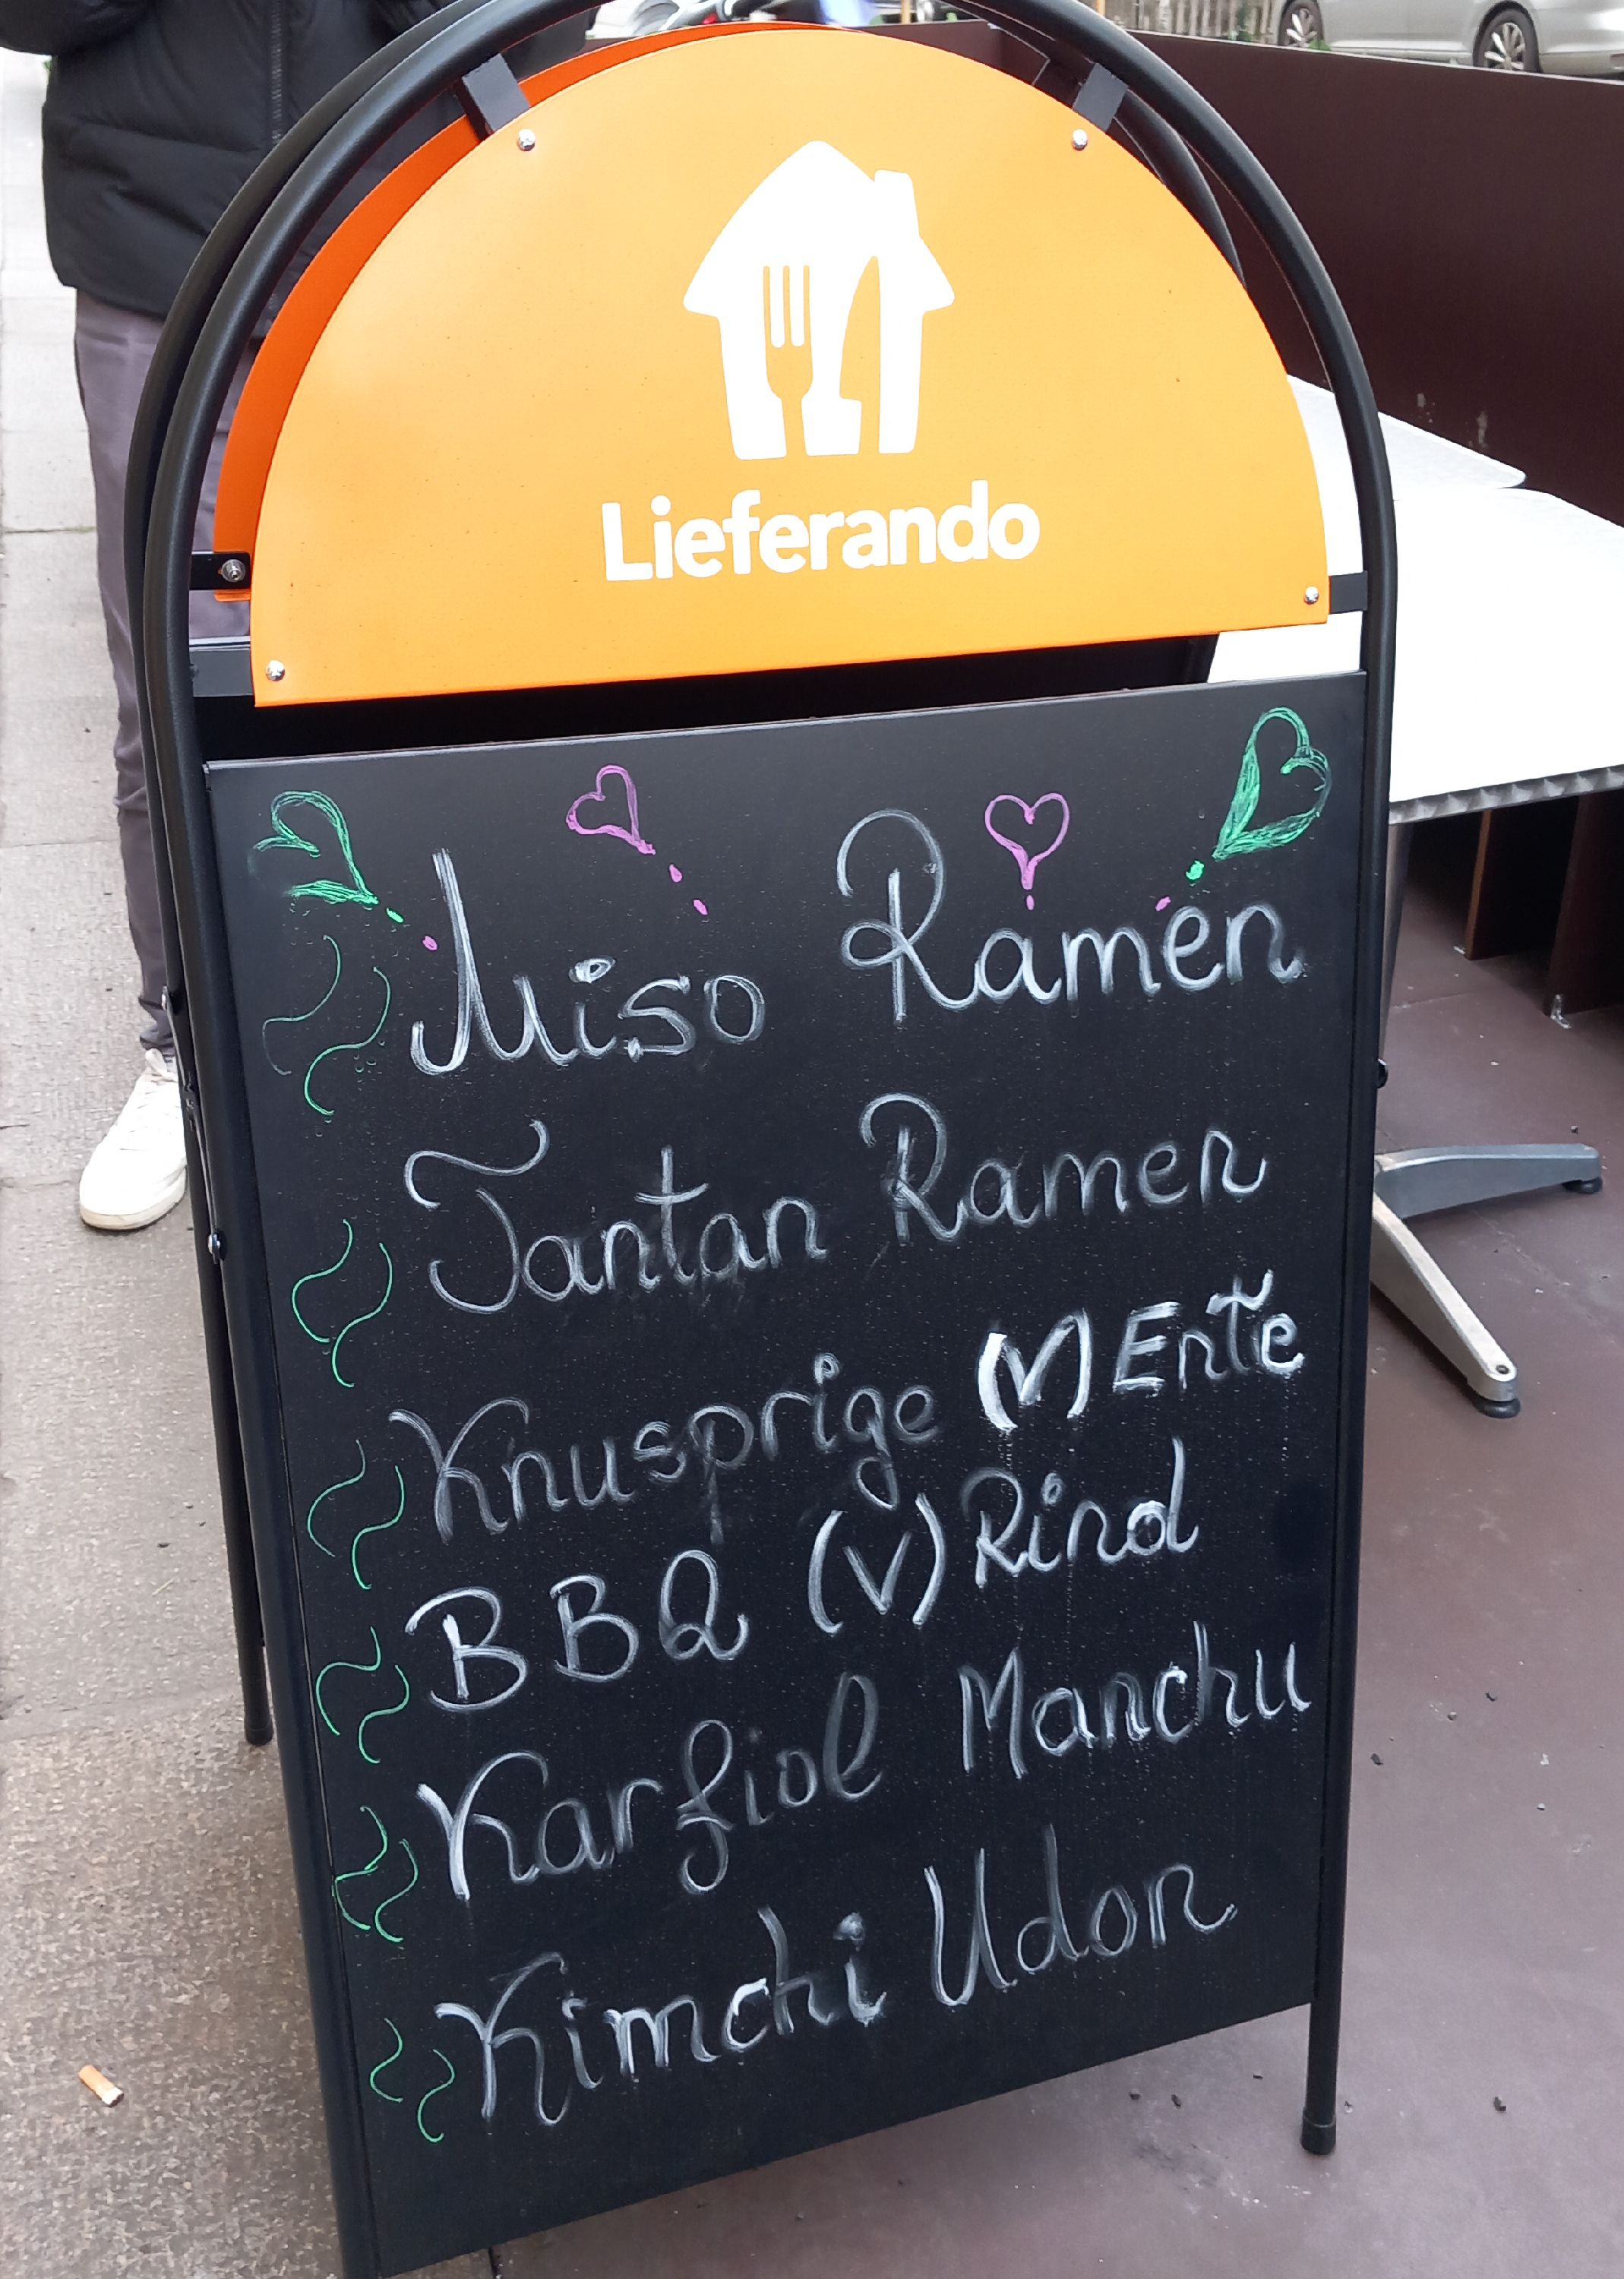 Lieferando
Miso Ramen
Tantan Ramen
Knusprige (V) Ente
BBQ (V) Rind
Karfiol Manchu
Kimchi Udon